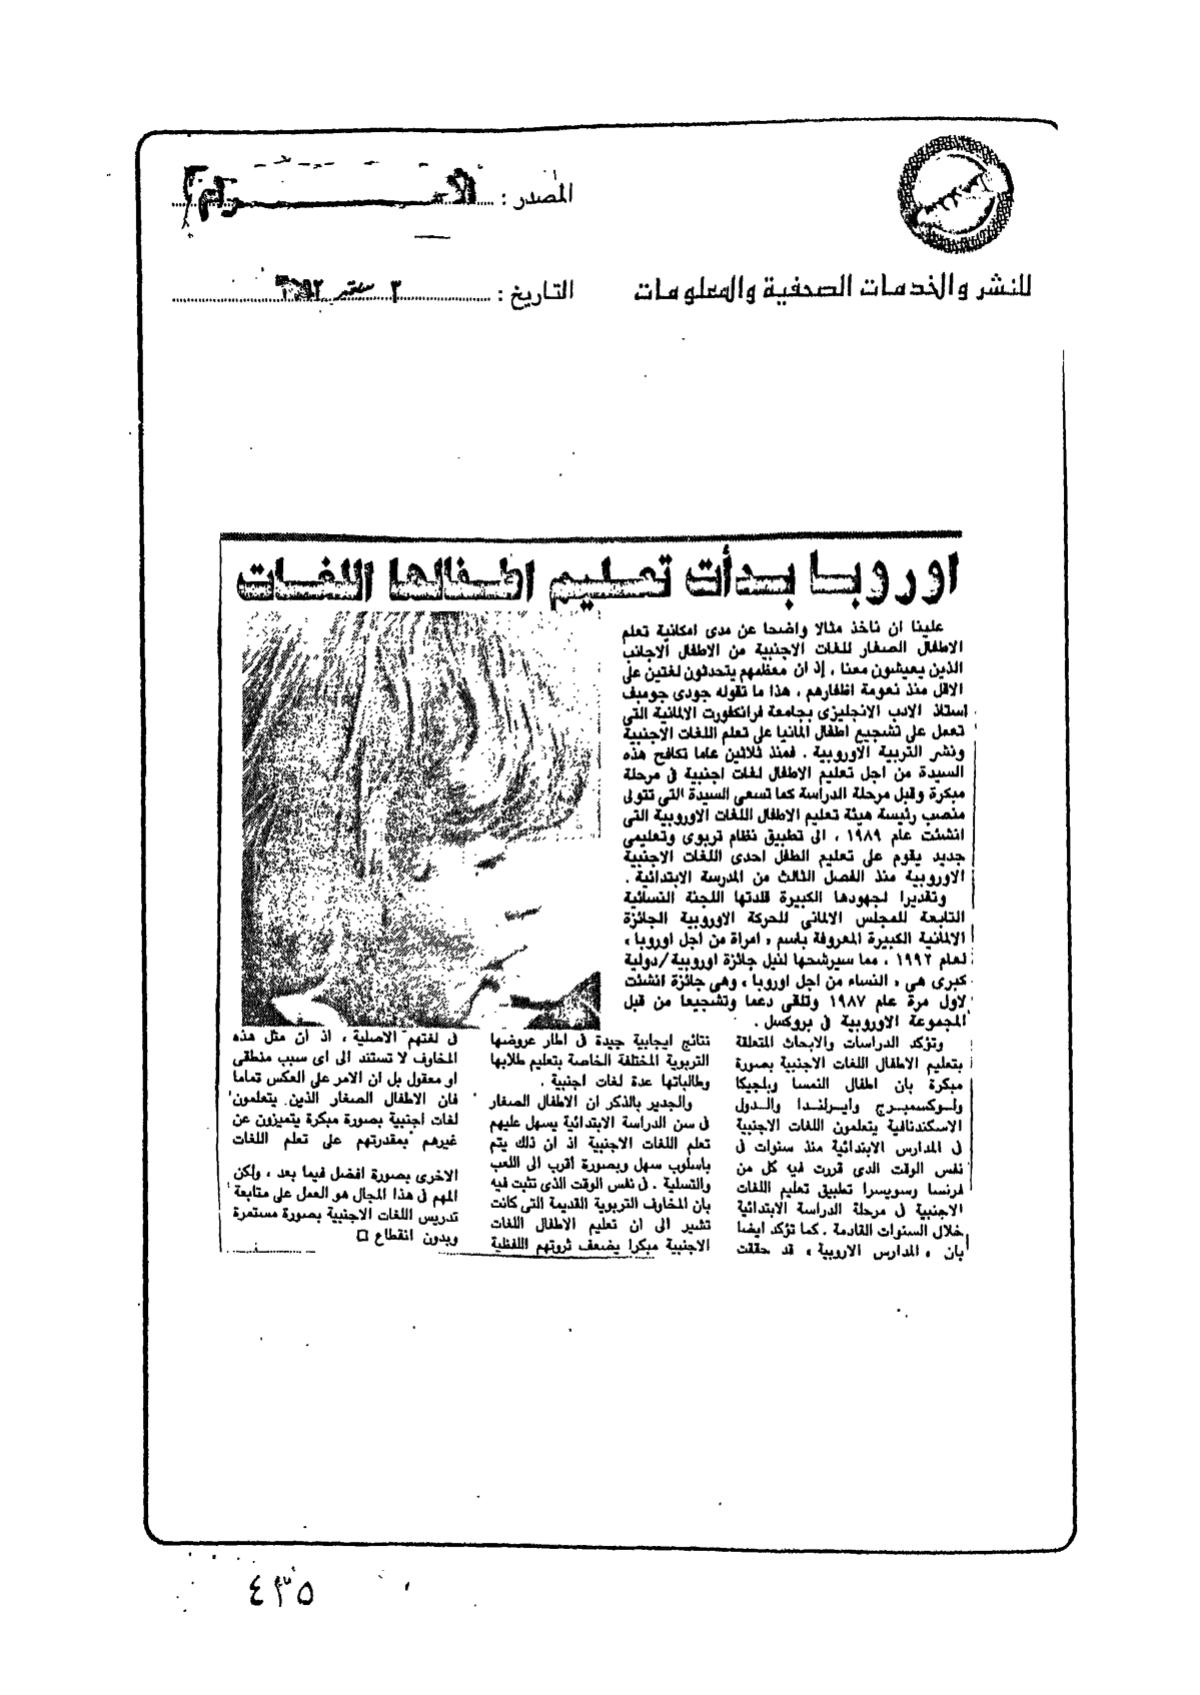 المصدر : الأهـــرام
للنشر والخدمات الصحفية والمعلومات
التاريخ : ٢ سبتمبر ١٩٩٢
اوروبا بدأت تعليم اطفالها اللغات
علينا ان ناخذ مثالا واضحا عن مدى امكانية تعلم
الاطفال الصغار للغات الاجنبية من الاطفال الاجانب
الذين يعيشون معنا ، إذ ان معظمهم يتحدثون لغتين على
الاقل منذ نعومة اظفارهم ، هذا ما تقوله جودى جوميف
استاذ الادب الانجليزى بجامعة فرانكفورت الالمانية التى
تعمل على تشجيع اطفال المانيا على تعلم اللغات الاجنبية
ونشر التربية الاوروبية . فمنذ ثلاثين عاما تكافح هذه
السيدة من اجل تعليم الاطفال لغات اجنبية فى مرحلة
مبكرة وقبل مرحلة الدراسة كما تسعى السيدة التى تتولى
منصب رئيسة هيئة تعليم الاطفال اللغات الاوروبية التى
انشئت عام ١٩٨٩ ، الى تطبيق نظام تربوى وتعليمى
جديد يقوم على تعليم الطفل احدى اللغات الاجنبية
الاوروبية منذ الفصل الثالث من المدرسة الابتدائية .
وتقديرا لجهودها الكبيرة قلدتها اللجنة النسائية
التابعة للمجلس الالمانى للحركة الاوروبية الجائزة
الالمانية الكبيرة المعروفة باسم « امراة من اجل اوروبا »
لعام ١٩٩٢ ، مما سيرشحها لنيل جائزة اوروبية/دولية
كبرى هى « النساء من اجل اوروبا » وهى جائزة انشئت
لاول مرة عام ١٩٨٧ وتلقى دعما وتشجيعا من قبل
المجموعة الاوروبية فى بروكسل .
وتؤكد الدراسات والابحاث المتعلقة
بتعليم الاطفال اللغات الاجنبية بصورة
مبكرة بان اطفال النمسا وبلجيكا
ولـوكسمبـرج وايـرلنـدا والـدول
الاسكندنافية يتعلمون اللغات الاجنبية
فى المدارس الابتدائية منذ سنوات فى
نفس الوقت الذى قررت فيه كل من
فرنسا وسويسرا تطبيق تعليم اللغات
الاجنبية فى مرحلة الدراسة الابتدائية
خلال السنوات القادمة . كما تؤكد ايضا
بان « المدارس الاروبية » قد حققت
نتائج ايجابية جيدة فى اطار عروضها
التربوية المختلفة الخاصة بتعليم طلابها
وطالباتها عدة لغات اجنبية .
والجدير بالذكر ان الاطفال الصغار
فى سن الدراسة الابتدائية يسهل عليهم
تعلم اللغات الاجنبية اذ ان ذلك يتم
باسلوب سهل وبصورة أقرب الى اللعب
والتسلية . فى نفس الوقت الذى تثبت فيه
بان المخاوف التربوية القديمة التى كانت
تشير الى ان تعليم الاطفال اللغات
الاجنبية مبكرا يضعف ثروتهم اللفظية
فى لغتهم الاصلية ، اذ أن مثل هذه
المخاوف لا تستند الى اى سبب منطقى
او معقول بل ان الامر على العكس تماما
فان الاطفال الصغار الذين يتعلمون
لغات اجنبية بصورة مبكرة يتميزون عن
غيرهم بمقدرتهم على تعلم اللغات
الاخرى بصورة افضل فيما بعد ، ولكن
المهم فى هذا المجال هو العمل على متابعة
تدريس اللغات الاجنبية بصورة مستمرة
وبدون انقطاع □
٤٣٥